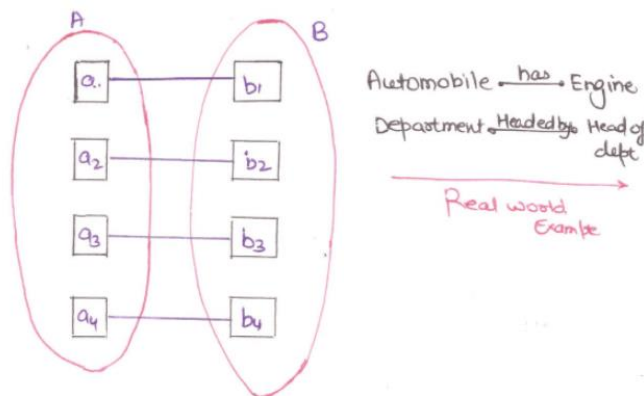 A
B
a.
b1
a2
b2
a3
b3
a4
b4
Automobile has Engine
Department Headedby Head of
dept
Real world
Exampe